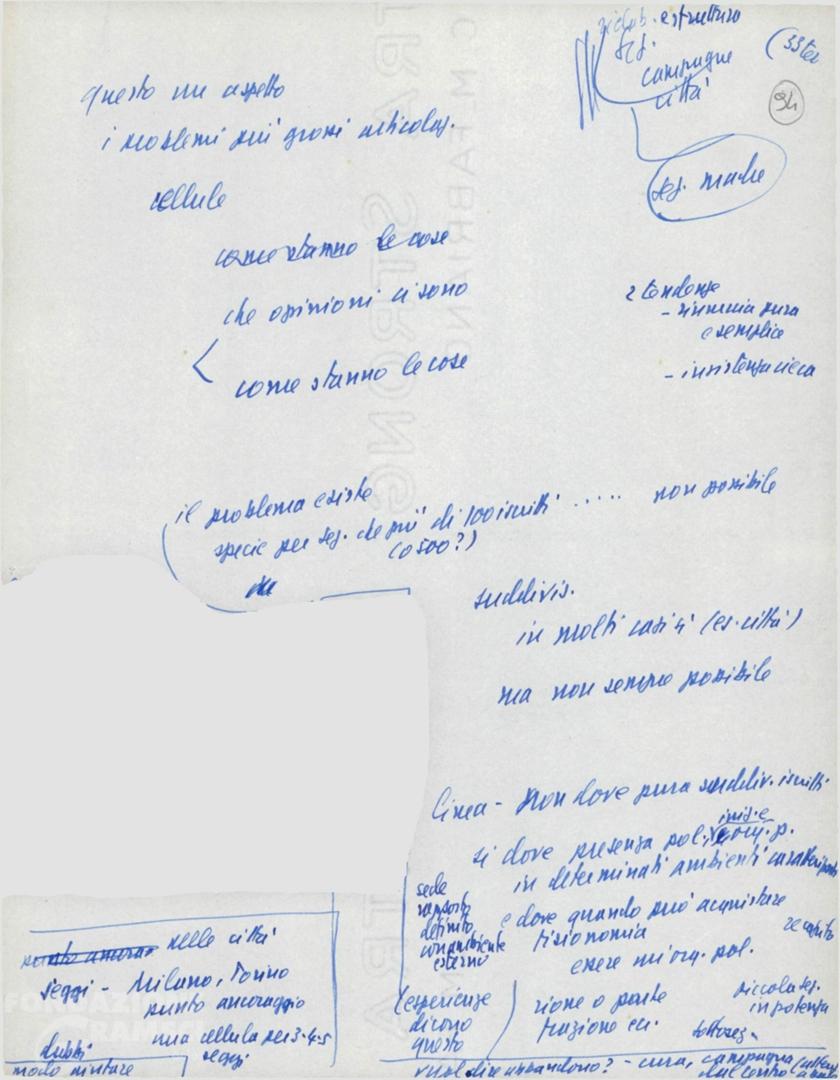 estruttura
sez.
campagne
città
(33 ter
94
sez. madre
questo un aspetto
i problemi più grossi articolaz.
cellule
come stanno le cose
che opinioni ci sono
come stanno le cose
2 tendenze
- rinuncia pura
e semplice
- insistenza cieca
il problema esiste
specie per sez. che più di 100 iscritti ..... non possibile
(o 500?)
suddivis.
in molti casi sì (es. città)
ma non sempre possibile
Linea - Non dove pura suddiv. iscritti
sì dove presenza pol. org. p.
in determinati ambienti
e dove quando può acquistare
fisionomia
essere un'org. pol.
sede
rapporto
definito
con ambiente
esterno
(esperienze
dicono
questo
rione o parte
frazione ecc.
piccola sez.
in potenza
sottosez.
punto ancora nelle città
seggi - Milano, Torino
punto ancoraggio
una cellula per 3-4-5
seggi
dubbi
modo aiutare
vuol dire abbandono? - cura, campagna
dal centro
FONDAZIONE
GRAMSCI
C.M. FABRIANO
EXTRA STRONG